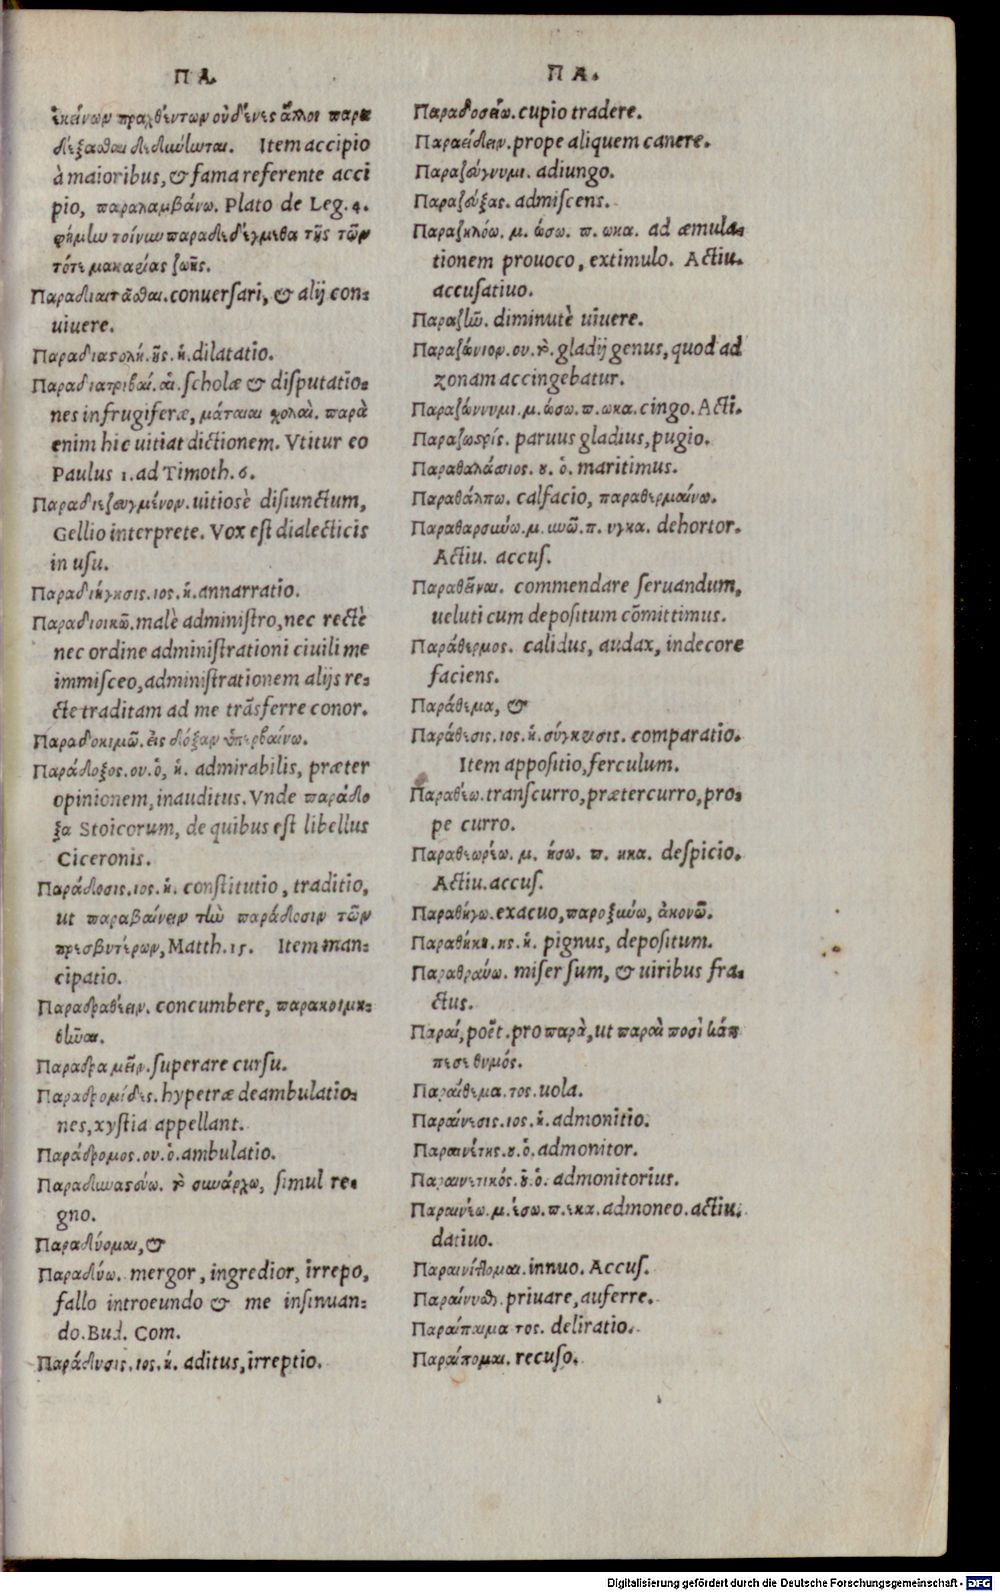 Π Α.
ἐκείνων πραχθέντων οὐδένες ἄλλοι παρα
δέξασθαι δεδύνωται. Item accipio
à maioribus, & fama referente acci
pio, παραλαμβάνω. Plato de Leg. 4.
φήμην τοίνυν παραδεδέγμεθα τῆς τῶν
τότε μακαρίας ζωῆς.
Παραδιαιτᾶσθαι. conuersari, & alij con:
uiuere.
Παραδιαστολή. ῆς. ἡ. dilatatio.
Παραδιατριβαί. αἱ. scholæ & disputatio:
nes infrugiferæ, μάταιαι χολαὶ. παρὰ
enim hic uitiat dictionem. Vtitur eo
Paulus 1. ad Timoth. 6.
Παραδιεζευγμένον. uitiosè disiunctum,
Gellio interprete. Vox est dialecticis
in usu.
Παραδιήγησις. ιος. ἡ. annarratio.
Παραδιοικῶ. malè administro, nec rectè
nec ordine administrationi ciuili me
immisceo, administrationem alijs re:
cte traditam ad me trāsferre conor.
Παραδοκιμῶ. εἰς δόξαν ὑπερβαίνω.
Παράδοξος. ου. ὁ, ἡ. admirabilis, præter
opinionem, inauditus. Vnde παράδο
ξα Stoicorum, de quibus est libellus
Ciceronis.
Παράδοσις. ιος. ἡ. constitutio, traditio,
ut παραβαίνειν τὴν παράδοσιν τῶν
πρεσβυτέρων, Matth. 15. Item man:
cipatio.
Παραδραθέειν. concumbere, παρακοιμη:
θῆναι.
Παραδραμεῖν. superare cursu.
Παραδρομίδες. hypetræ deambulatio:
nes, xystia appellant.
Παράδρομος. ου. ὁ. ambulatio.
Παραδυναστεύω. τὸ συνάρχω, simul re:
gno.
Παραδύομαι, &
Παραδύω. mergor, ingredior, irrepo,
fallo introeundo & me insinuan:
do. Bud. Com.
Παράδυσις. ιος. ἡ. aditus, irreptio.
Π Α.
Παραδοσείω. cupio tradere.
Παραείδειν. prope aliquem canere.
Παραζεύγνυμι. adiungo.
Παραζεύξας. admiscens.
Παραζηλόω. μ. ώσω. π. ωκα. ad æmula:
tionem prouoco, extimulo. Actiu.
accusatiuo.
Παραζῶ. diminutè uiuere.
Παραζώνιον. ου. τὸ. gladij genus, quod ad
zonam accingebatur.
Παραζώννυμι. μ. ώσω. π. ωκα. cingo. Acti.
Παραζωστρίς. paruus gladius, pugio.
Παραθαλάσιος. ου. ὁ. maritimus.
Παραθάλπω. calfacio, παραθερμαίνω.
Παραθαρσύνω. μ. υνῶ. π. υγκα. dehortor.
Actiu. accus.
Παραθεῖναι. commendare seruandum,
ueluti cum depositum cōmittimus.
Παράθερμος. calidus, audax, indecore
faciens.
Παράθεμα, &
Παράθεσις. ιος. ἡ. σύγκρισις. comparatio.
Item appositio, ferculum.
Παραθέω. transcurro, prætercurro, pro:
pe curro.
Παραθεωρέω. μ. ήσω. π. ηκα. despicio.
Actiu. accus.
Παραθήγω. exacuo, παροξύνω, ἀκονῶ.
Παραθήκη. ης. ἡ. pignus, depositum.
Παραθραύω. miser sum, & uiribus fra:
ctus.
Παραί, poët. pro παρὰ, ut παραὶ ποσὶ κάπ
πεσε θυμός.
Παραίθεμα. τος. uola.
Παραίνεσις. ιος. ἡ. admonitio.
Παραινέτης. ου. ὁ. admonitor.
Παραινετικός. οῦ. ὁ. admonitorius.
Παραινέω. μ. έσω. π. εκα. admoneo. actiu.
datiuo.
Παραινίττομαι. innuo. Accus.
Παραίνυσθαι. priuare, auferre.
Παραίπαιμα τος. deliratio.
Παραίπομαι. recuso.
Digitalisierung gefördert durch die Deutsche Forschungsgemeinschaft - DFG